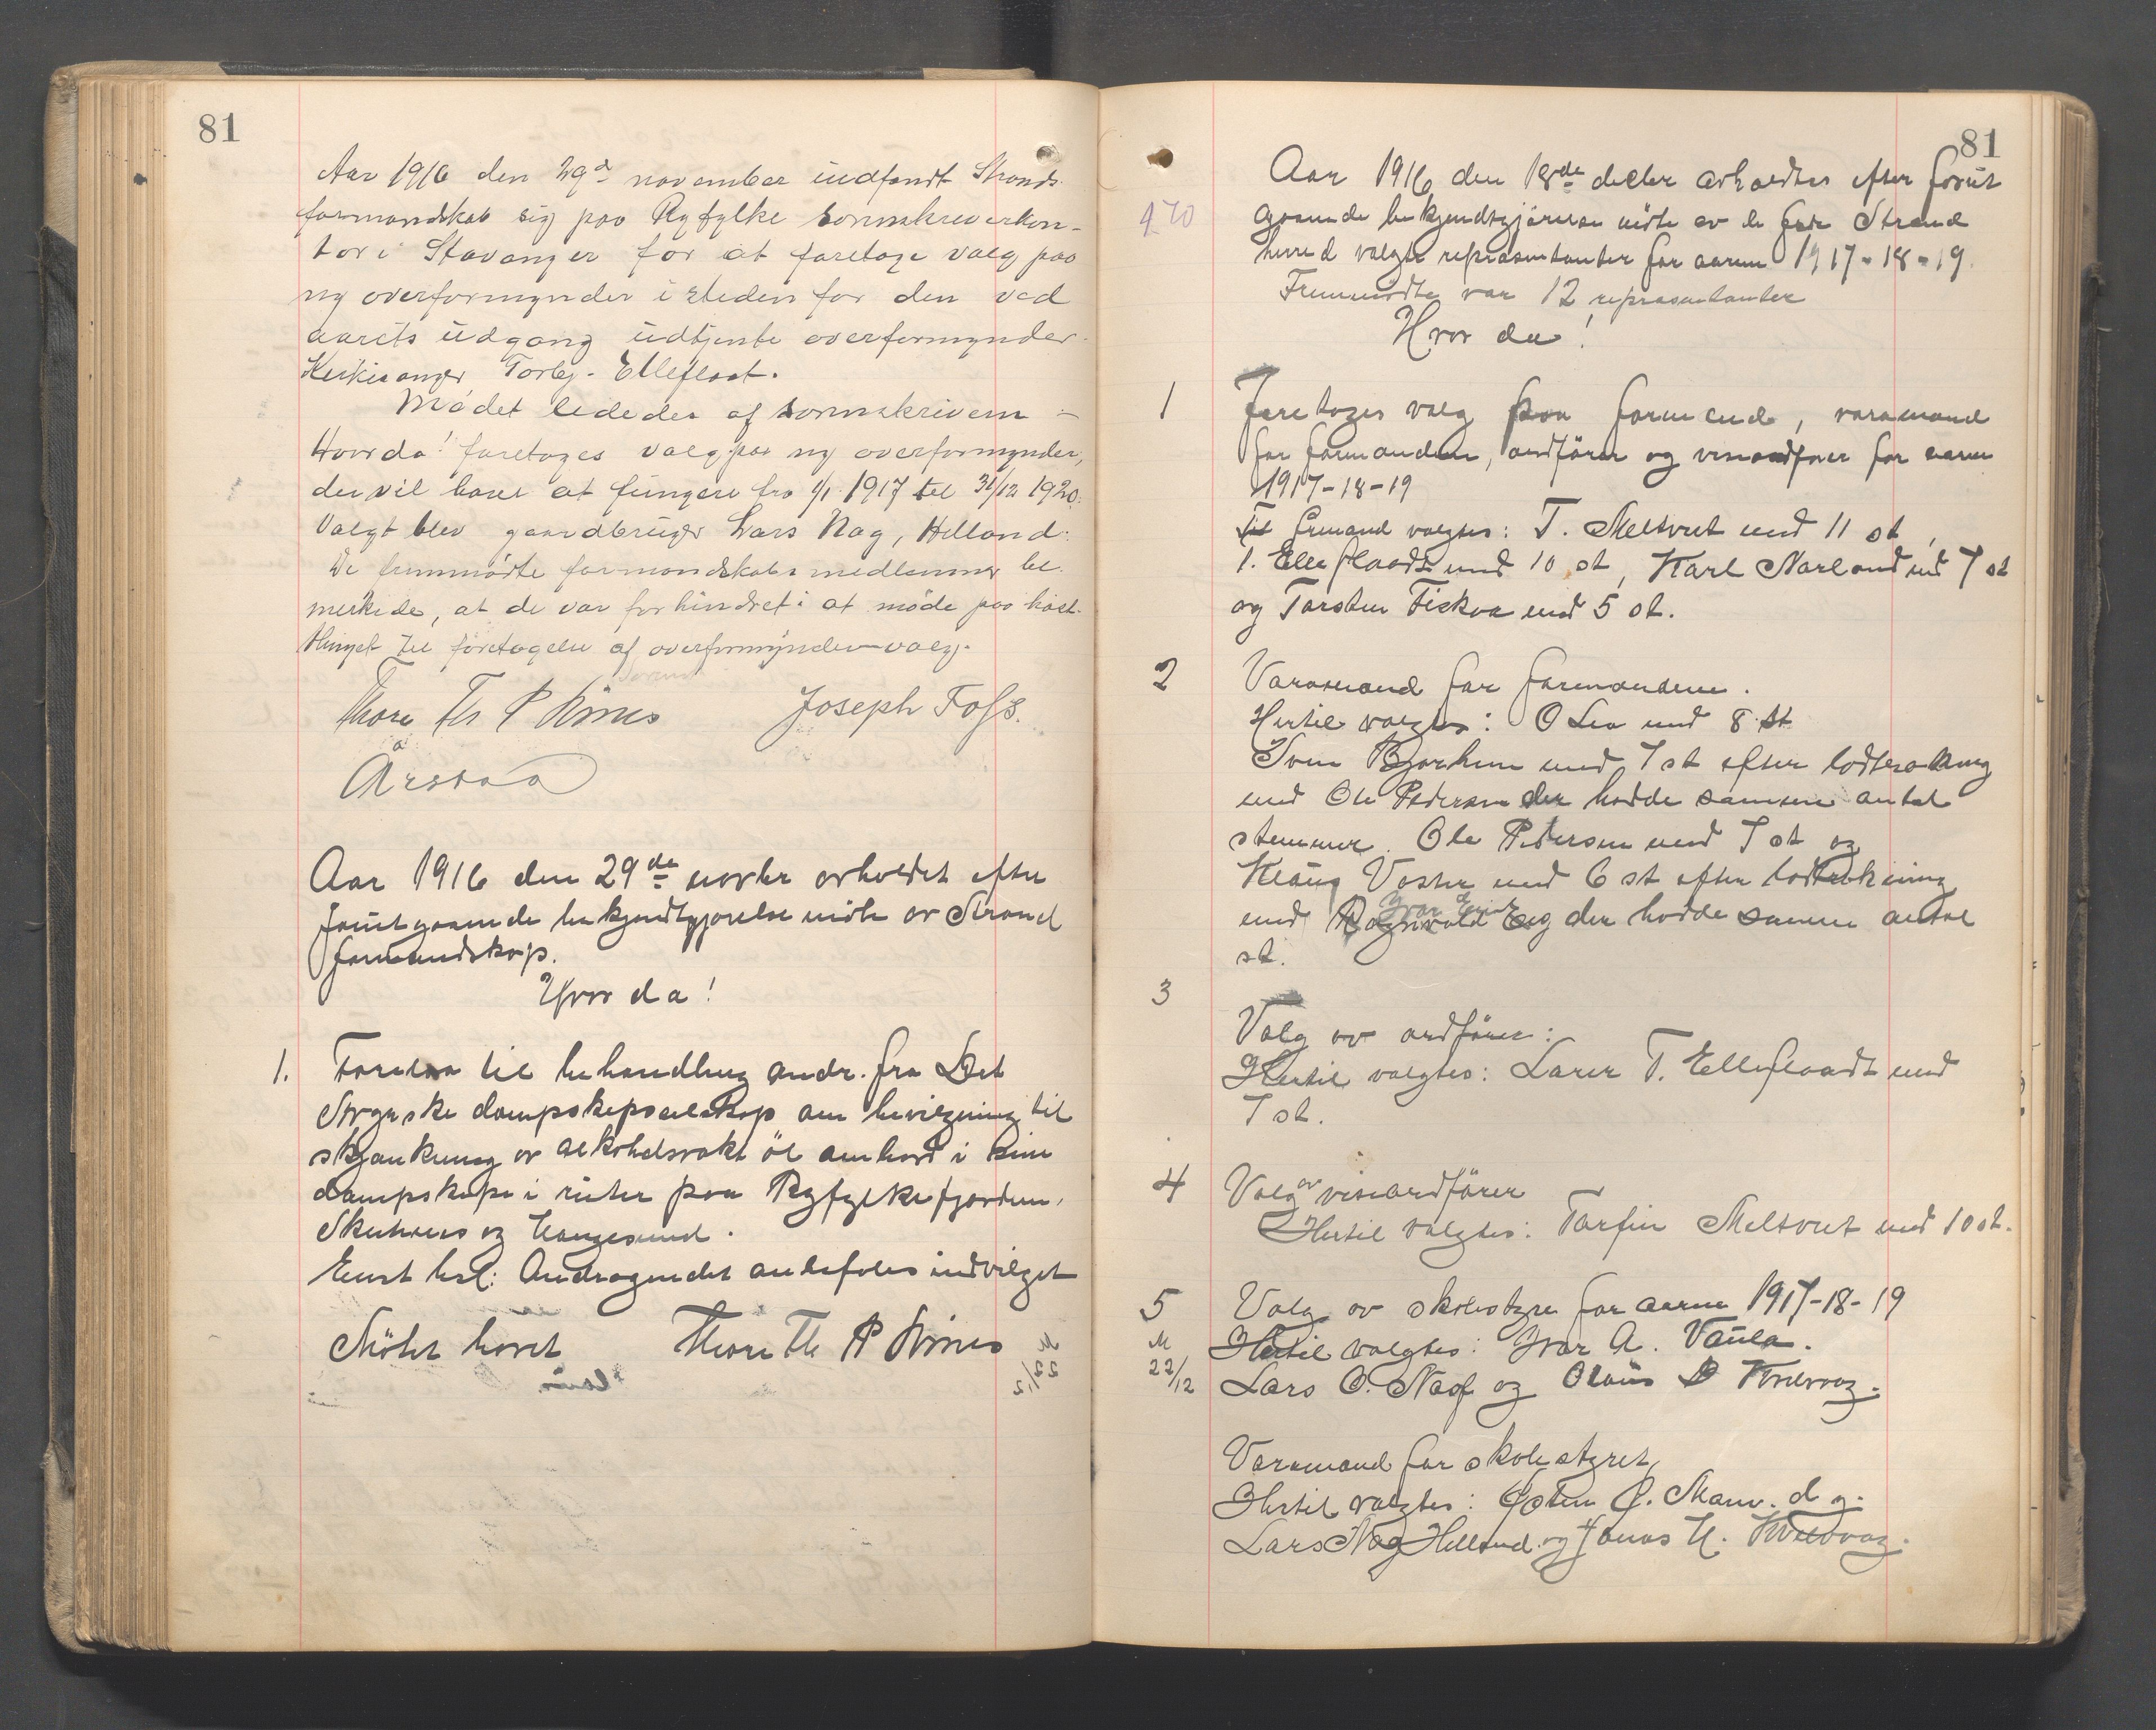 81
Aar 1916 den 29de november indfandt Strands
formandskab sig paa Ryfylke sorenskriverkon-
tor i Stavanger for at foretage valg paa
ny overformynder isteden for den ved
aarets udgang udtjente overformynder
Kirkesanger Torbj. Elleflaat.
Mødet lededes af sorenskriveren
Hvorda! foretages valg paa ny overformynder,
der vil have at fungere fra 1/1 1917 til 31/12 1920.
Valgt blev gaardbruger Lars Nag, Helland.
De fremmødte formandskabsmedlemmer be
merkede, at de var forhindret i at møde paa høst-
thinget til foretagelse af overformyndervalg.
Thore Th P Rönes Joseph Foss.
Årstaa
Aar 1916 den 29de novbr avholdt efter
forutgaaende bekjendtgjørelse møte av Strand
formandskap.
Hvor da!
1. Forelaa til behandling andr. fra Det
Stvgrske dampskipsselskap om bevilgning til
skjænkning av alkoholsvakt öl ombord i sine
dampskipe i ruter paa Ryfylkefjordene,
og Haugesund.
Enst besl: Andragendet anbefales indvilget
Mötet hævet Thore Th P Rönes
81
470
Aar 1916 den 18de decbr avholdtes efter forut
gaaende bekjendtgjörelse möte av de for Strand
herred valgte repræsentanter for aarene 1917-18-19.
Fremmödte var 12 repræsentanter
Hvor da!
1 Foretoges valg paa formænd, varamænd
for formændene, ordförer og viseordförer for aarene
1917-18-19
Til formænd valgtes: T. Meltveit med 11 st,
1. Elleflaadt med 10 st, Karl Norland med 7 st
og Torsten Fiskaa med 5 st.
2 Varamænd for formændene.
Hertil valgtes: O Lea med 8 st
Sven Bjørheim med 7 st efter lodtrækning
med Ole Pedersen der hadde samme antal
stemmer. Ole Pedersen med 7 st og
Klaus Voster med 6 st efter lodtrækning
med Ragnvald Eeg der hadde samme antal
st.
3
Valg av ordförer:
Hertil valgtes: Lærer T. Elleflaadt med
7 st.
4 Valg av viseordförer
Hertil valgtes: Torfin Meltveit med 10 st.
5 Valg av skolestyre for aarene 1917-18-19
M Hertil valgtes: Ivar A. Vaula.
22/12 Lars O. Nag og Olaus
Varamænd for skolestyret,
Hertil valgtes: d y.
Lars Nag Helland og Jonas H.